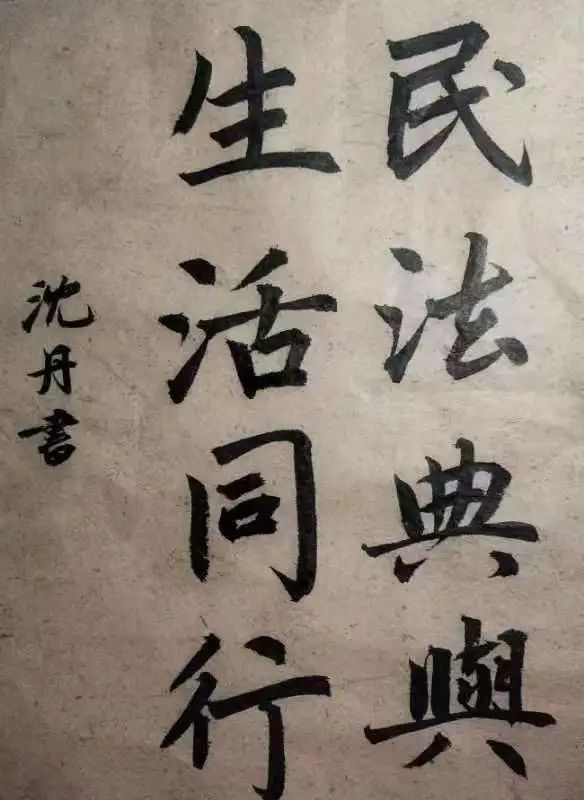 民法典與
生活同行
沈丹書